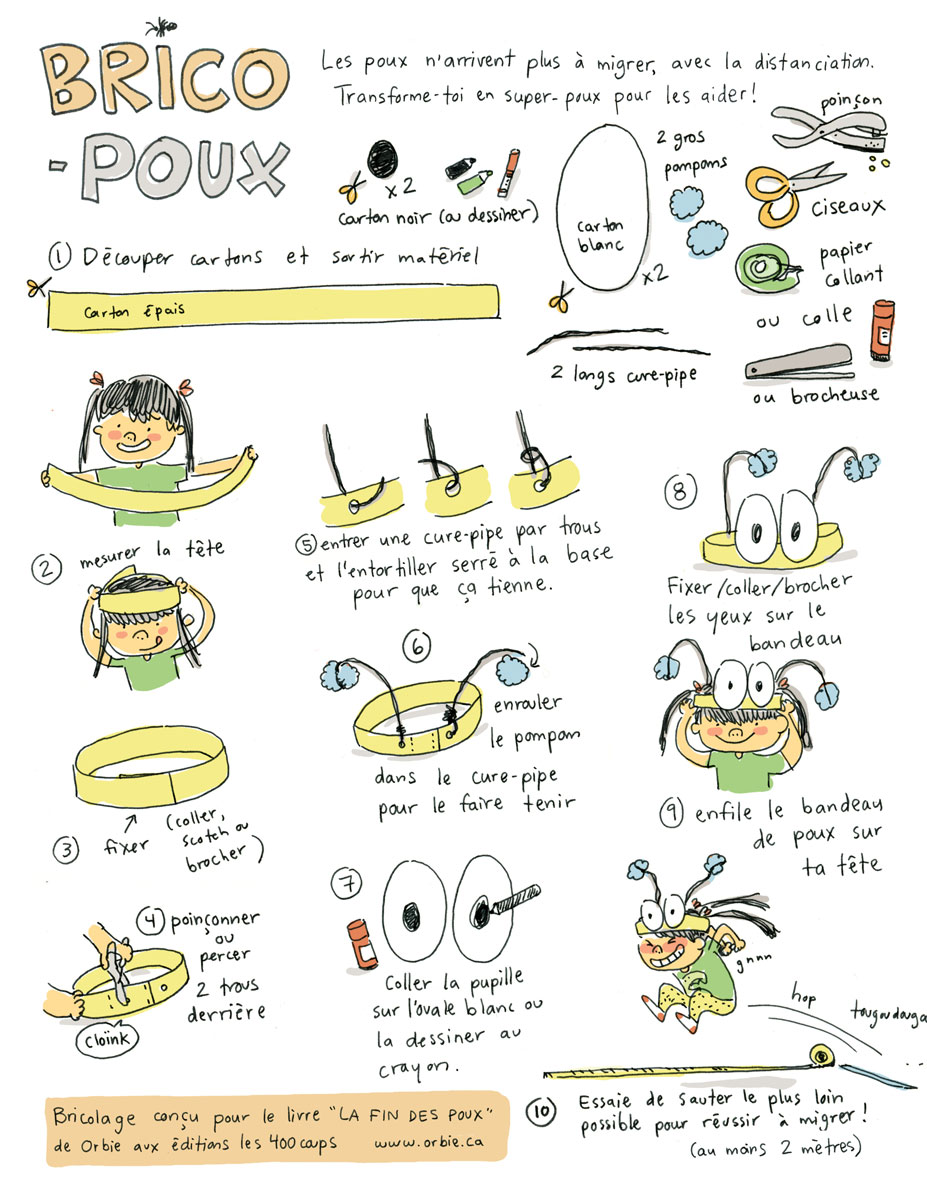 BRICO
-POUX
Les poux n'arrivent plus à migrer, avec la distanciation.
Transforme-toi en super-poux pour les aider!
x2
carton noir (ou dessiner)
carton
blanc
x2
2 gros
pompoms
poinçon
ciseaux
papier
collant
ou colle
ou brocheuse
2 longs cure-pipe
1 Découper cartons et sortir matériel
carton épais
2 mesurer la tête
3 fixer
(coller,
scotch ou
brocher)
4 poinçonner
ou
percer
2 trous
derrière
cloink
5 entrer une cure-pipe par trous
et l'entortiller serré à la base
pour que ça tienne.
6
enrouler
le pompom
dans le cure-pipe
pour le faire tenir
7
Coller la pupille
sur l'ovale blanc ou
la dessiner au
crayon.
8
Fixer/coller/brocher
les yeux sur le
bandeau
9 enfile le bandeau
de poux sur
ta tête
gnnn
hop
10 Essaie de sauter le plus loin
possible pour réussir à migrer!
(au moins 2 mètres)
Bricolage conçu pour le livre "LA FIN DES POUX"
de Orbie aux éditions les 400 coups www.orbie.ca